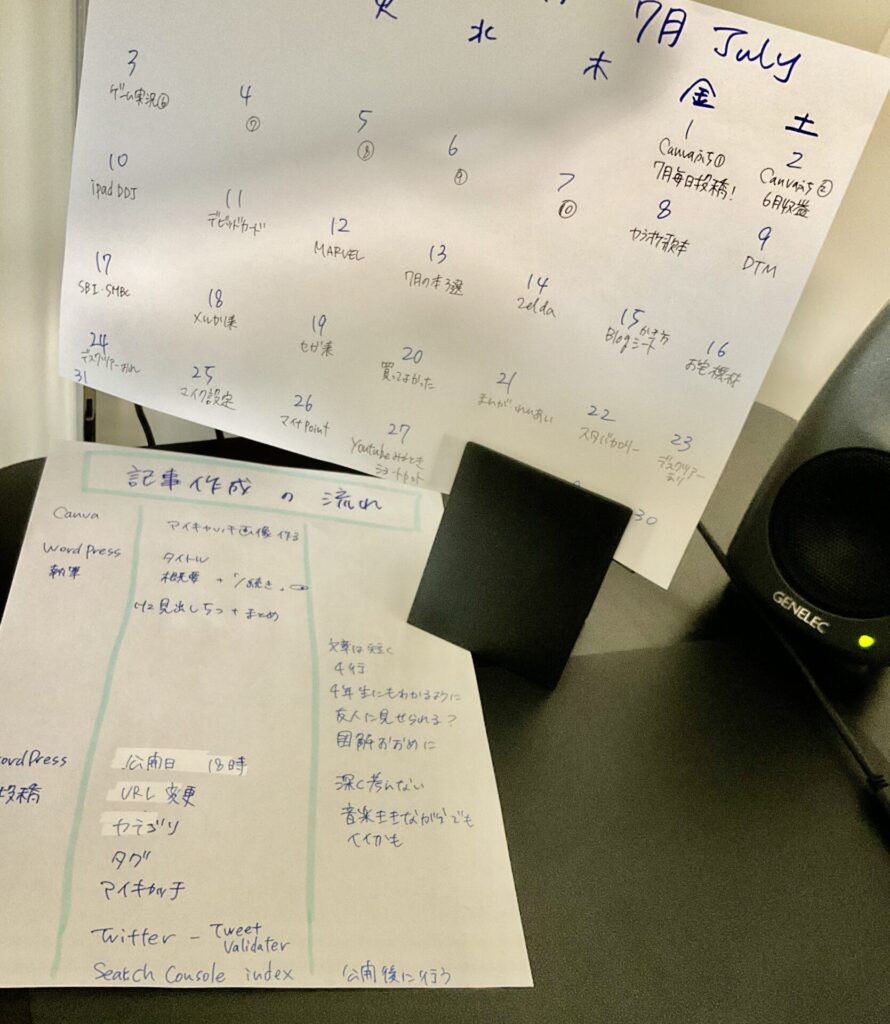 7月 July
火
水
木
金
土
1
Canvaぷち①
7月毎日投稿!
2
Canvaぷち②
6月収益
3
ゲーム実況⑥
4
⑦
5
⑧
6
⑨
7
⑩
8
カラオケ歌本
9
DTM
10
ipad DDJ
11
デビットカード
12
MARVEL
13
7月の本3選
14
Zelda
15
Blog かき方
シート
16
お宅機材
17
SBI・SMBC
18
メルカリ来
19
セガ来
20
買ってよかった
21
まんが れんあい
22
スタバカロリー
23
デスクツアー
24
デスクツアー
25
マイク設定
26
マイナPoint
27
Youtube みるとき
ショートカット
30
31
記事作成の流れ
Canva
アイキャッチ画像 作る
WordPress
執筆
タイトル
概要 + 「/続き」
H2 見出し5つ + まとめ
文章は短く
4行
4年生にもわかるように
友人に見せられる?
図解おおめに
深く考えない
音楽ききながらでも
イイかも
WordPress
投稿
公開日 18時
URL 変更
カテゴリ
タグ
アイキャッチ
Twitter - Tweet
Validater
Seatch Console index
公開後に行う
GENELEC